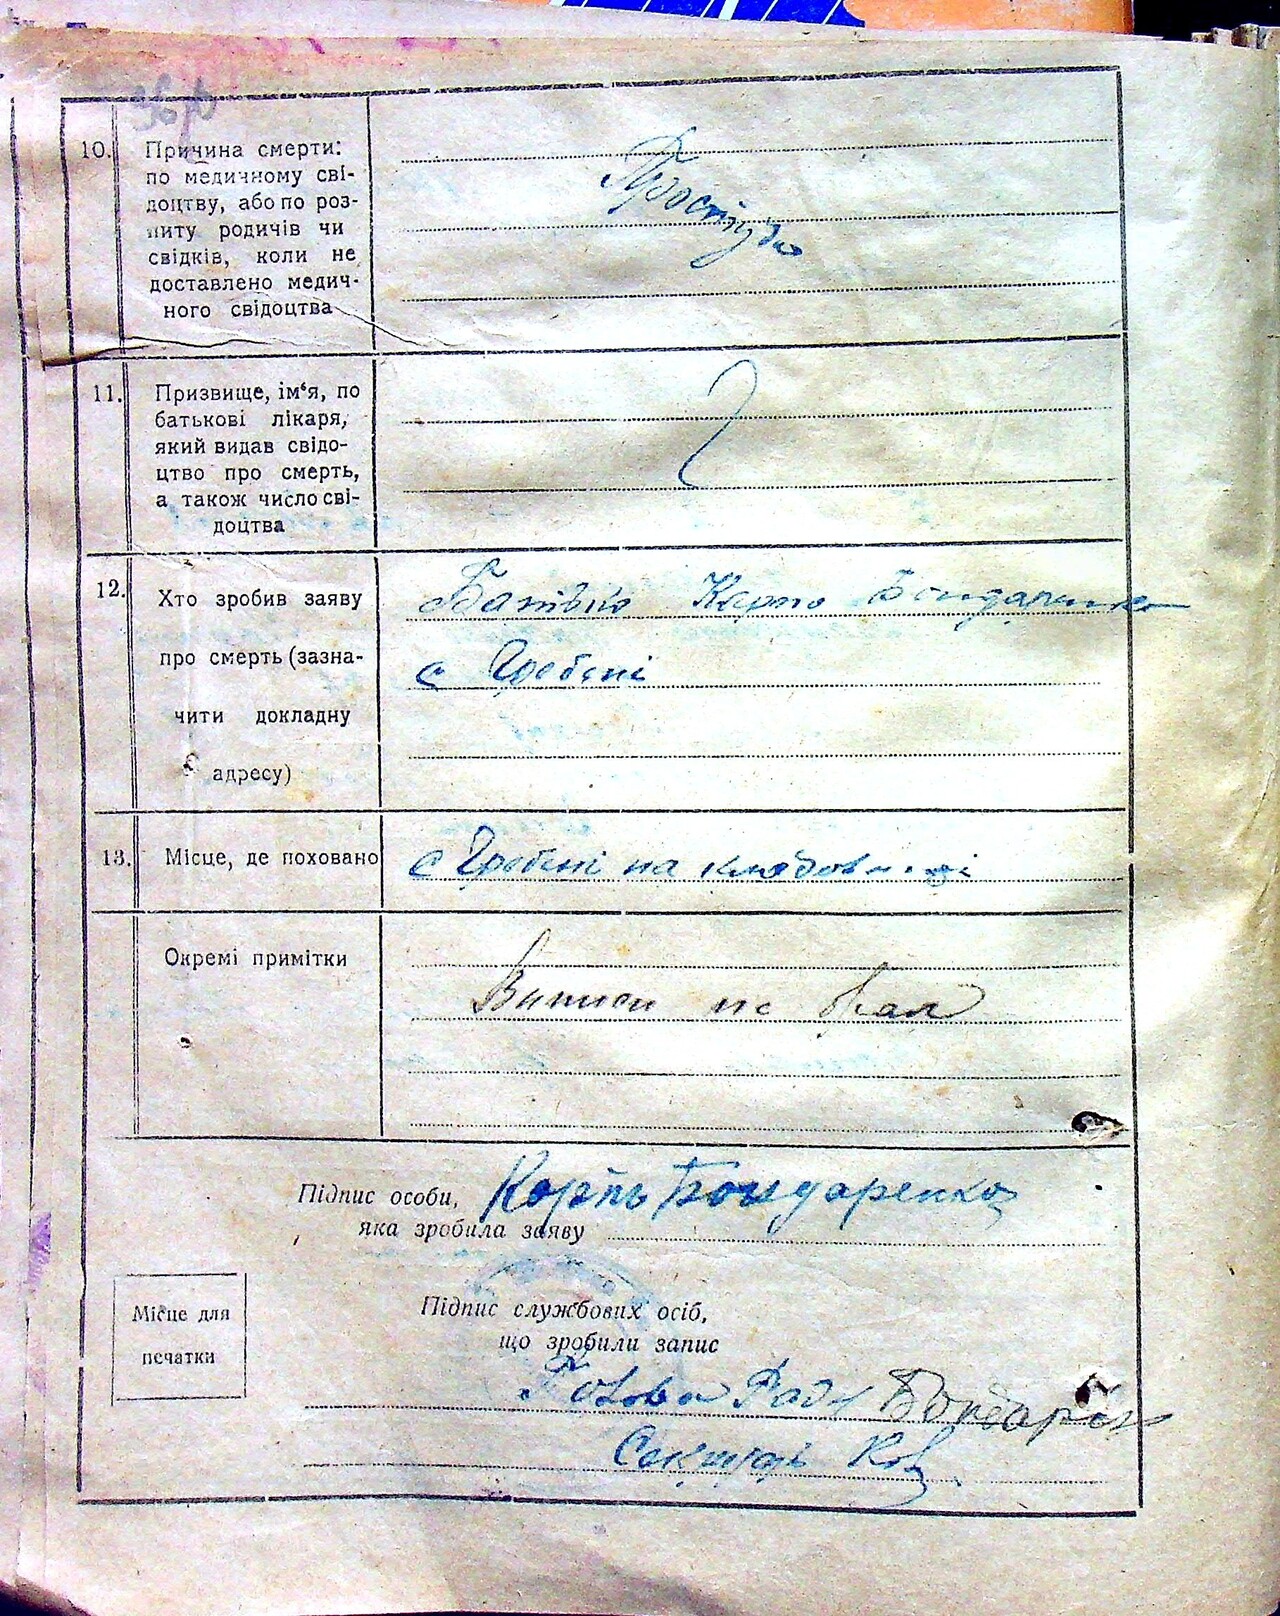 10. Причина смерти:
по медичному сві-
доцтву, або по роз-
питу родичів чи
свідків, коли не
доставлено медич-
ного свідоцтва
Простуда
11. Призвище, ім‘я, по
батькові лікаря,
який видав свідо-
цтво про смерть,
а також число сві-
доцтва
12. Хто зробив заяву
про смерть (зазна-
чити докладну
адресу)
Батько Карпо Бондаренко
с Гребені
13. Місце, де поховано
с Гребені на кладовищі
Окремі примітки
Виписи не брал
Підпис особи,
яка зробила заяву
Карпь Бондаренко
Місце для
печатки
Підпис службових осіб,
що зробили запис
Голова Ради Бондарен
Секретарь